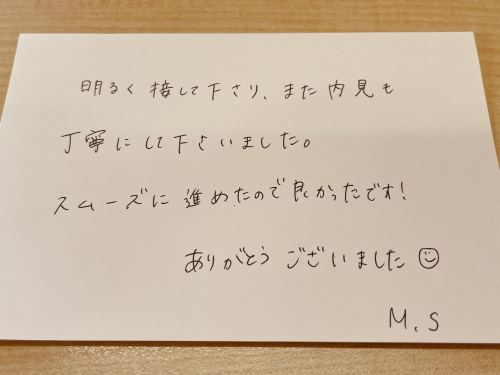 明るく接して下さり、また内見も
丁寧にして下さいました。
スムーズに進めたので良かったです!
ありがとうございました☺
M.S